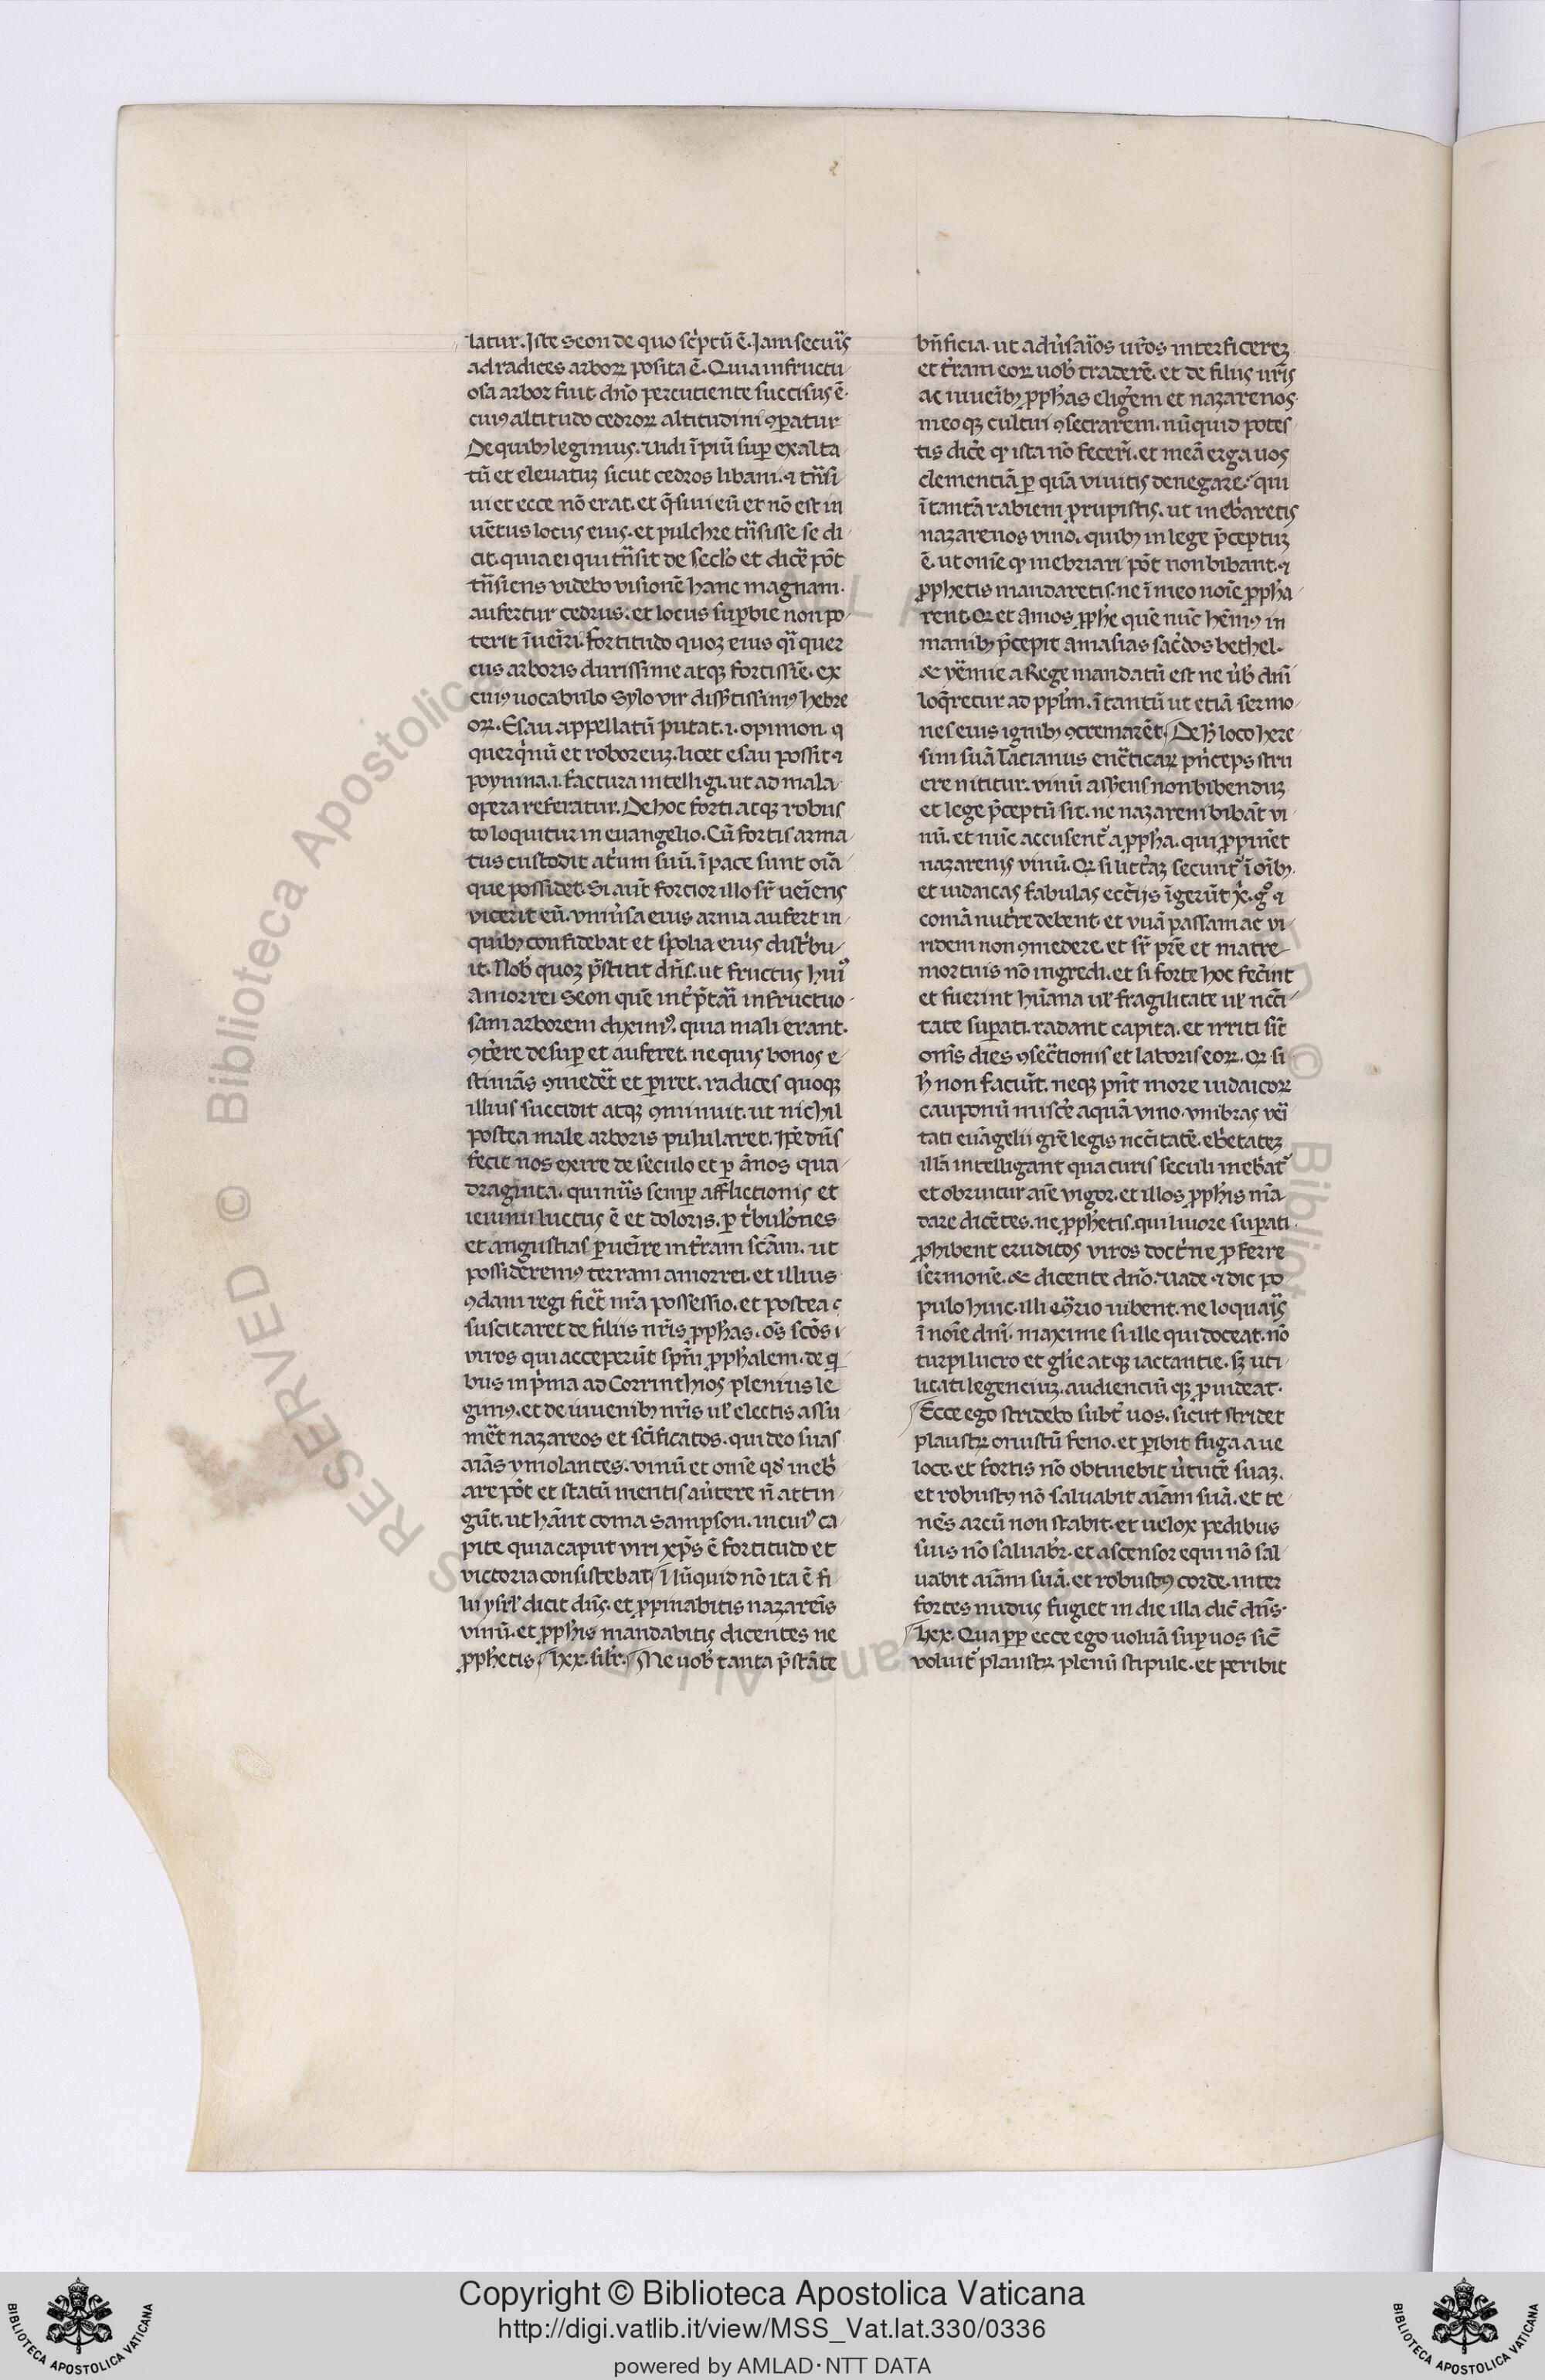 latur. Iste Seon de quo sc'ptũ ẽ. Jam securis
ad radices arboꝝ posita ẽ. Quia infructu
osa arbor fuit dño percutiente succisus ẽ.
cuiꝰ altitudo cedroꝝ altitudini ꝯꝑatur
De quibꝫ legimus. Vidi ĩpiũ suꝑ exalta
tũ et eleuatuꝫ sicut cedros libani. ⁊ tñsi
ui et ecce nõ erat. et q̃siui eũ et nõ est in
uẽtus locus eius. et pulchre tñsisse se di
cit. quia ei qui tñsit de sec'lo et dic̃e põt
tñsiens videbo visionẽ hanc magnam.
aufertur cedrus. et locus suꝑbie non po
terit ĩueĩri. fortitudo quoꝫ eius q̃i quer
cus arboris durissime atqꝫ fortissĩe. ex
cuiꝰ uocabulo Sylo vir disertissimꝰ hebre
oꝝ. Esau appellatũ putat. i. opinion. q
querq̃nũ et roboreuꝫ. licet esau possit ⁊
poymna. i. factura intelligi. ut ad mala
opera referatur. De hoc forti atqꝫ robus
to loquitur in euangelio. Cũ fortis arma
tus custodit at'um suũ. ĩ pace sunt oĩa
que possidet. Si aut̃ forcior illo sr̃ ueĩens
vicerit eũ. vniũsa eius arma aufert in
quibꝫ confidebat et spolia eius dist'bu
it. Nob' quoꝫ p̃stitit dñs. ut fructus huiꝰ
Amorrei Seon quẽ int'p̃tati infructuo
sam arborem diximꝰ. quia mali erant.
ꝯt'ere desuꝑ et auferet. ne quis bonos e
stimãs ꝯmedet̃ et ꝑiret. radices quoqꝫ
illius succidit atqꝫ ꝯminuit. ut nichil
postea male arboris pulularet. Ipẽ dñs
fecit nos exire de seculo et ꝑ ãnos qua
draginta. qui nũs semꝑ afflictionis et
ieiunii luctus ẽ et doloris. ꝑ t'bul'ones
et angustias ꝑueĩre in t'ram scãm. ut
possideremꝰ terram amorrei. et illius
ꝯdam regi fiet̃ nr̃a possessio. et postea
suscitaret de filiis nr̃is ꝓphas. oĩs scõs
viros qui acceperũt spm̃ ꝓph'alem. de q
bus in p'ma ad Corrinthios plenius le
gimꝰ. et de iuuenibꝫ nr̃is uł electis assu
met̃ nazareos et sc̃ificatos. qui deo suas
aĩas ymolantes. vinũ et omẽ qđ ineb'
are põt et statũ mentis au'tere ñ attin
gũt. ut hãnt coma Sampson. in cuiꝰ ca
pite quia caput viri xp̃s ẽ fortitudo et
victoria consistebat. Nũquid nõ ita ẽ fi
lii ysrł dicit dñs. et ꝓpinabitis nazareĩs
vinũ. et ꝓph'is mandabitis dicentes ne
ꝓph'etis. hex. sil'r. Ne uob' tanta p̃stãte
bñficia. ut adu'sarios ur̃os interficereꝫ
et t'ram eoꝝ uob' traderẽ. et de filiis ur̃is
ac iuueibꝫ ꝓphas elig'em et nazarenos
meo qꝫ cultui ꝯsecrarem. nũquid potes
tis dic'e ꝙ ista nõ fecerĩ. et meã erga uos
clementiã ꝑ quã viuitis denegare. qui
ĩ tantã rabiem ꝓrupistis. ut ineb'aretis
nazarenos vino. quibꝫ in lege p̃ceptuꝫ
ẽ. ut omẽ ꝙ inebriari põt non bibant. ⁊
ꝓphetis mandaretis. ne ĩ meo noĩe ꝓpha
rent. Qꝫ et Amos ꝓphe quẽ nũc hẽmꝰ in
manibꝫ p̃cepit Amasias sac'dos bethel.
& Yẽmie a Rege mandatũ est ne u'b dñi
loq̃retur ad ppl'm. ĩ tantũ ut etiã sermo
nes eius ignibꝫ ꝯcremarẽt. De h' loco here
sim suã Tãcianus encr̃ticaꝝ p'nceps stru
ere nititur. vinũ asserens non bibenduꝫ
et lege p̃ceptũ sit. ne nazareni bibãt vi
nũ. et nũc accusent' a ꝓpha. qui ꝓpinẽt
nazarenis vinũ. Qꝫ si litt'aꝫ secunt' ĩ oĩbꝫ
et iudaicas fabulas ecc'iis ĩgerũt
comã nut're debent. et vuã passam ac vi
ridem non ꝯmedere. et sr̃ pr̃e et matre
mortuis nõ ingredi. et si forte hoc fec'int
et fuerint hũana uł fragilitate uł ncc̃i
tate suꝑati. radant capita. et irriti sĩt
oms dies ꝯsecr̃tionis et laboris eoꝝ. Qꝫ si
h' non faciũt. neqꝫ pñt more iudaicoꝝ
cauponũ misc'e aquã vino. vmbras ueri
tati euãgelii gr̃e legis ncc̃itatẽ. eb'etateꝫ
illã intelligant qua curis seculi ineb'at'
et obruitur aĩe vigor. et illos ꝓph'is mã
dare dicẽtes. ne ꝓph'etis. qui liuore suꝑati
ꝓhibent eruditos viros doct'ne ꝓferre
sermonẽ. & dicente dño. Vade ⁊ dic po
pulo huic. illi iubent. ne loquaris
ĩ noĩe dñi. maxime si ille qui doceat. nõ
turpi lucro et gl'ie atqꝫ iactantie. sꝫ uti
litati legenciuꝫ. audienciũ qꝫ ꝓuideat.
Ecce ego stridebo subt' uos. sicut stridet
plaustꝝ onustũ feno. et ꝑibit fuga a ue
loce. et fortis nõ obtinebit u'tutẽ suaꝫ.
et robustꝰ nõ saluabit aĩam suã. et te
nẽs arcũ non stabit. et uelox pedibus
suis nõ saluab'r. et ascensor equi nõ sal
uabit aĩam suã. et robustꝰ corde. inter
fortes nudus fugiet in die illa dic̃ dñs.
hex. Qua ꝓp ecce ego uoluã suꝑ uos sic̃
voluit' plaustꝝ plenũ stipule. et peribit
Copyright © Biblioteca Apostolica Vaticana
http://digi.vatlib.it/view/MSS_Vat.lat.330/0336
powered by AMLAD·NTT DATA